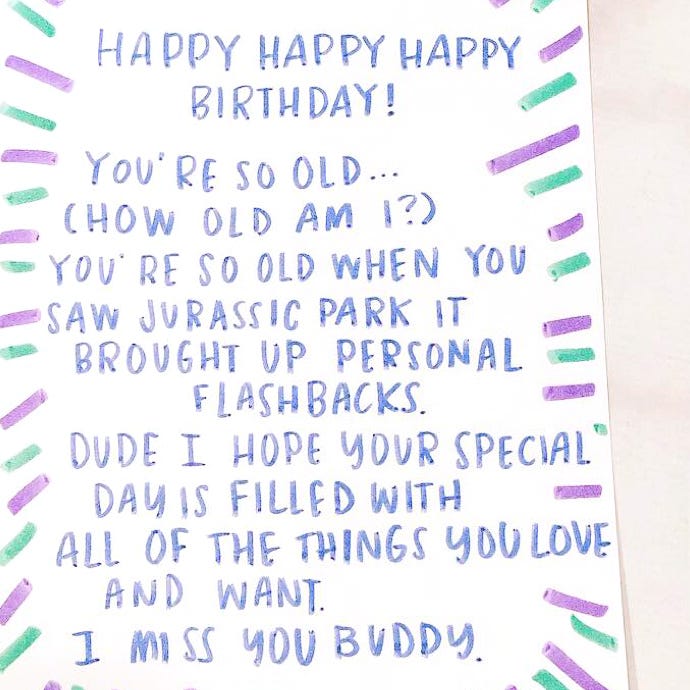 HAPPY HAPPY HAPPY
BIRTHDAY!
YOU'RE SO OLD...
(HOW OLD AM I?)
YOU'RE SO OLD WHEN YOU
SAW JURASSIC PARK IT
BROUGHT UP PERSONAL
FLASHBACKS.
DUDE I HOPE YOUR SPECIAL
DAY IS FILLED WITH
ALL OF THE THINGS YOU LOVE
AND WANT.
I MISS YOU BUDDY.